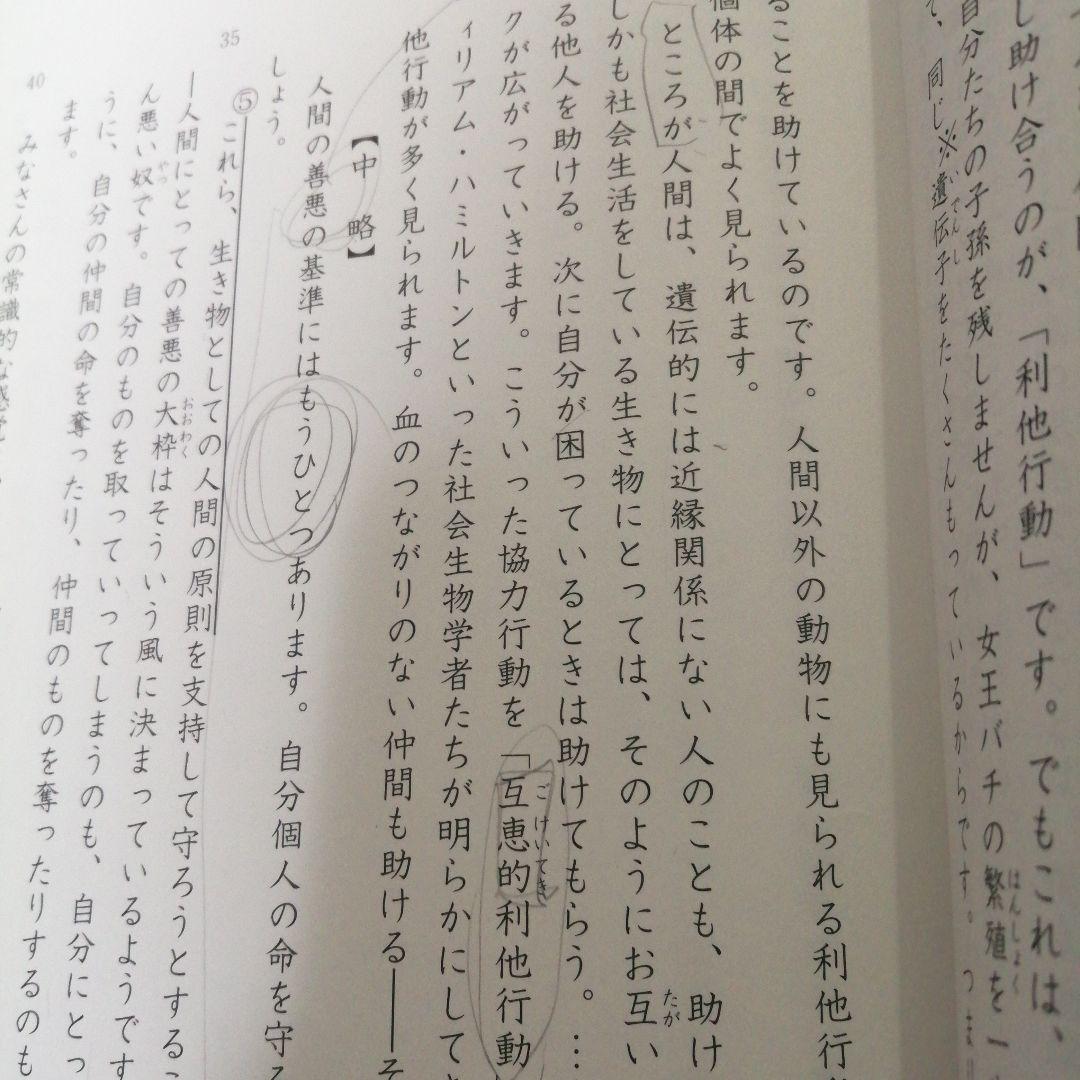 し助け合うのが、「利他行動」です。でもこれは、
自分たちの子孫を残しませんが、女王バチの繁殖を一
はんしょく
て、同じ※遺伝子をたくさんもっているからです。つまり
いでんし
ることを助けているのです。人間以外の動物にも見られる利他行
個体の間でよく見られます。
ところが人間は、遺伝的には近縁関係にない人のことも、助け
しかも社会生活をしている生き物にとっては、そのようにお互い
たが
る他人を助ける。次に自分が困っているときは助けてもらう。…
クが広がっていきます。こういった協力行動を「互恵的利他行動
ごけいてき
ィリアム・ハミルトンといった社会生物学者たちが明らかにして
他行動が多く見られます。血のつながりのない仲間も助ける――そ
【中略】
人間の善悪の基準にはもうひとつあります。自分個人の命を守る
しょう。
35
⑤これら、生き物としての人間の原則を支持して守ろうとするこ
―人間にとっての善悪の大枠はそういう風に決まっているようです
おおわく
ん悪い奴です。自分のものを取っていってしまうのも、自分にとっ
やつ
うに、自分の仲間の命を奪ったり、仲間のものを奪ったりするのも
ます。
40
みなさんの常識的な感覚